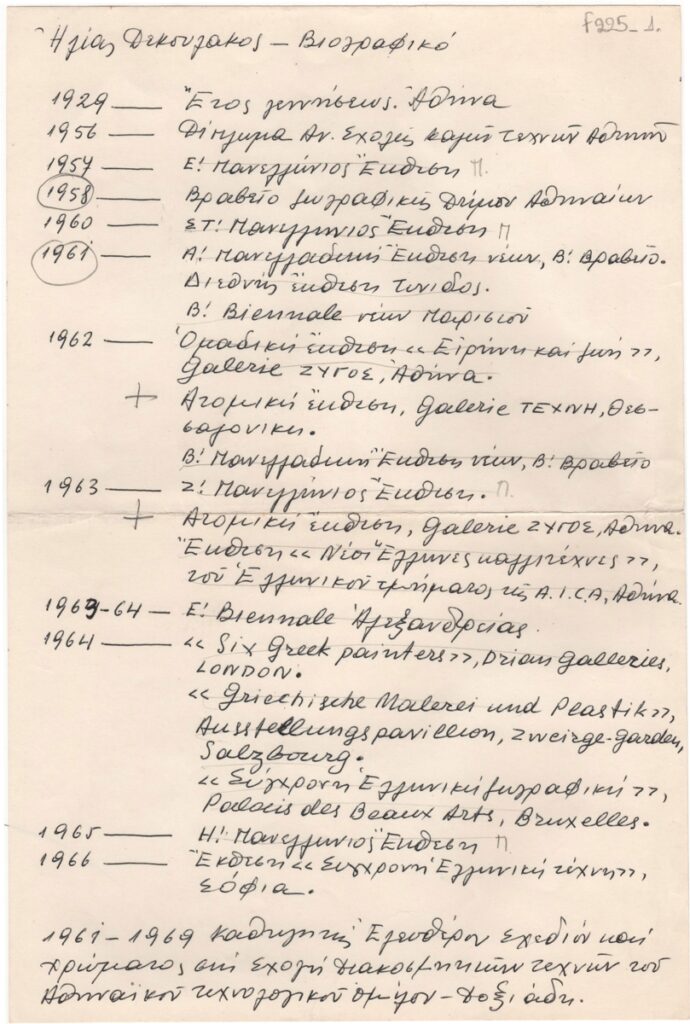 f225-1.
Ηλίας Δεκουλάκος – Βιογραφικό
1929 — Έτος γεννήσεως. Αθήνα
1956 — Δίπλωμα Αν. Σχολής Καλών Τεχνών Αθηνών
1957 — Ε! Πανελλήνιος Έκθεση Π.
1958 — Βραβείο ζωγραφικής Δήμου Αθηναίων
1960 — ΣΤ! Πανελλήνιος Έκθεση Π
1961 — Α! Πανελλαδική Έκθεση νέων, Β! Βραβείο.
Διεθνής έκθεση Τύνιδος.
Β! Biennale νέων Παρισιού
1962 — Ομαδική έκθεση « Ειρήνη και ζωή »,
Galerie ΖΥΓΟΣ, Αθήνα.
+ Ατομική έκθεση, Galerie ΤΕΧΝΗ, Θεσ-
σαλονίκη.
Β! Πανελλαδική Έκθεση νέων, Β! Βραβείο
1963 — Ζ! Πανελλήνιος Έκθεση. Π.
+ Ατομική έκθεση, Galerie ΖΥΓΟΣ, Αθήνα.
Έκθεση « Νέοι Έλληνες καλλιτέχνες »,
του Ελληνικού τμήματος της A.I.C.A, Αθήνα.
1963-64 — Ε! Biennale Αλεξανδρείας.
1964 — « Six Greek painters », Drian Galleries,
LONDON.
« Griechische Malerei und Plastik »,
Ausstellungspavillion, Zweirge-garden,
Salzbourg.
« Σύγχρονη Ελληνική ζωγραφική »,
Palais des Beaux Arts, Bruxelles.
1965 — Η! Πανελλήνιος Έκθεση Π
1966 — Έκθεση « Σύγχρονη Ελληνική τέχνη »,
Σόφια.
1961 – 1969 Καθηγητής Ελευθέρου Σχεδίου και
χρώματος στη Σχολή Διακοσμητικών τεχνών του
Αθηναϊκού τεχνολογικού ομίλου – Δοξιάδη.